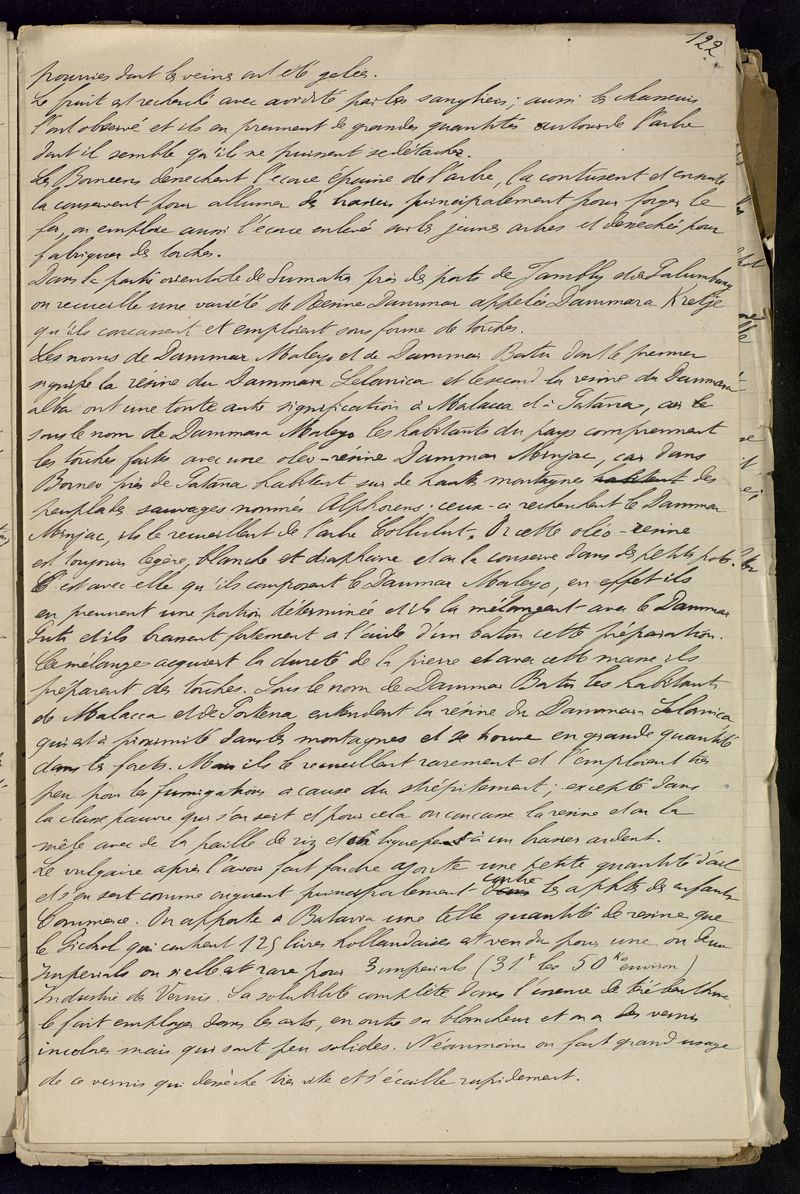 122
pourries dont les veines ont été gelées.
Le fruit est recherché avec avidité par les sangliers; aussi les chasseurs
l'ont observé et ils en prennent de grandes quantités autour de l'arbre
dont il semble qu'ils ne puissent se détacher.
Les Bornéens dessechent l'écorce épaisse de l'arbre, la contusent et ensuite
la conservent pour allumer des brasiers principalement pour forger le
fer, on emploie aussi l'écorce enlevée sur les jeunes arbres et dessechée pour
fabriquer des torches.
Dans la partie orientale de Sumatra près des ports de Jambly et de Palumbang
on recueille une variété de Resine Dammar appelée Dammara Kretje
qu'ils concassent et emploient sous forme de torches.
Les noms de Dammar Maleyo et de Dammar Batu dont le premier
signifie la resine du Dammara Selanica et le second la resine du Dammara
alba ont une toute autre signification à Malacca et à Patana, car
sous le nom de Dammara Maleyo les habitants du pays comprennent
les torches faites avec une oléo-résine Dammar Minjac, car dans
Borneo près de Patana habitent sur de hautes montagnes habitent des
peuplades sauvages nommés Alphorens: ceux-ci recherchent le Dammar
Minjac, ils le recueillent de l'arbre Collulut. Or cette oléo-resine
est toujours légère, blanche et diaphane et on la conserve dans des petits pots.
C'est avec elle qu'ils composent le Dammar Maleyo, en effet ils
en prennent une portion déterminée et ils la mélangent avec le Dammar
Puti et ils brassent fortement à l'aide d'un baton cette préparation.
Ce mélange acquiert la dureté de la pierre et avec cette masse ils
préparent des torches. Sous le nom de Dammar Batu les habitants
de Malacca et de Portena entendent la résine du Dammara Selanica
qui est à proximité dans les montagnes et se trouve en grande quantité
dans les forets. Mais ils le recueillent rarement et l'emploient très
peu pour les fumigations à cause du strépitement; excepté dans
la classe pauvre qui s'en sert et pour cela on concasse la resine et on la
mêle avec de la paille de riz et on liquefie à un brasier ardent.
Le vulgaire après l'avoir fait fondre ajoute une petite quantité d'ail
et s'en sert comme onguent principalement contre les aphtes des enfants.
Commerce. On apporte à Batavia une telle quantité de resine que
le Picol qui contient 125 livres hollandaises est vendu pour une ou deux
Imperials ou si elle est rare pour 3 imperials (31f les 50 Ko environ)
Industrie des Vernis. Sa solubilité complète dans l'essence de térébenthine
le fait employer dans les arts, en outre sa blancheur et on a des vernis
incolores mais qui sont peu solides. Néanmoins on fait grand usage
de ce vernis qui dessèche très vite et s'écaille rapidement.